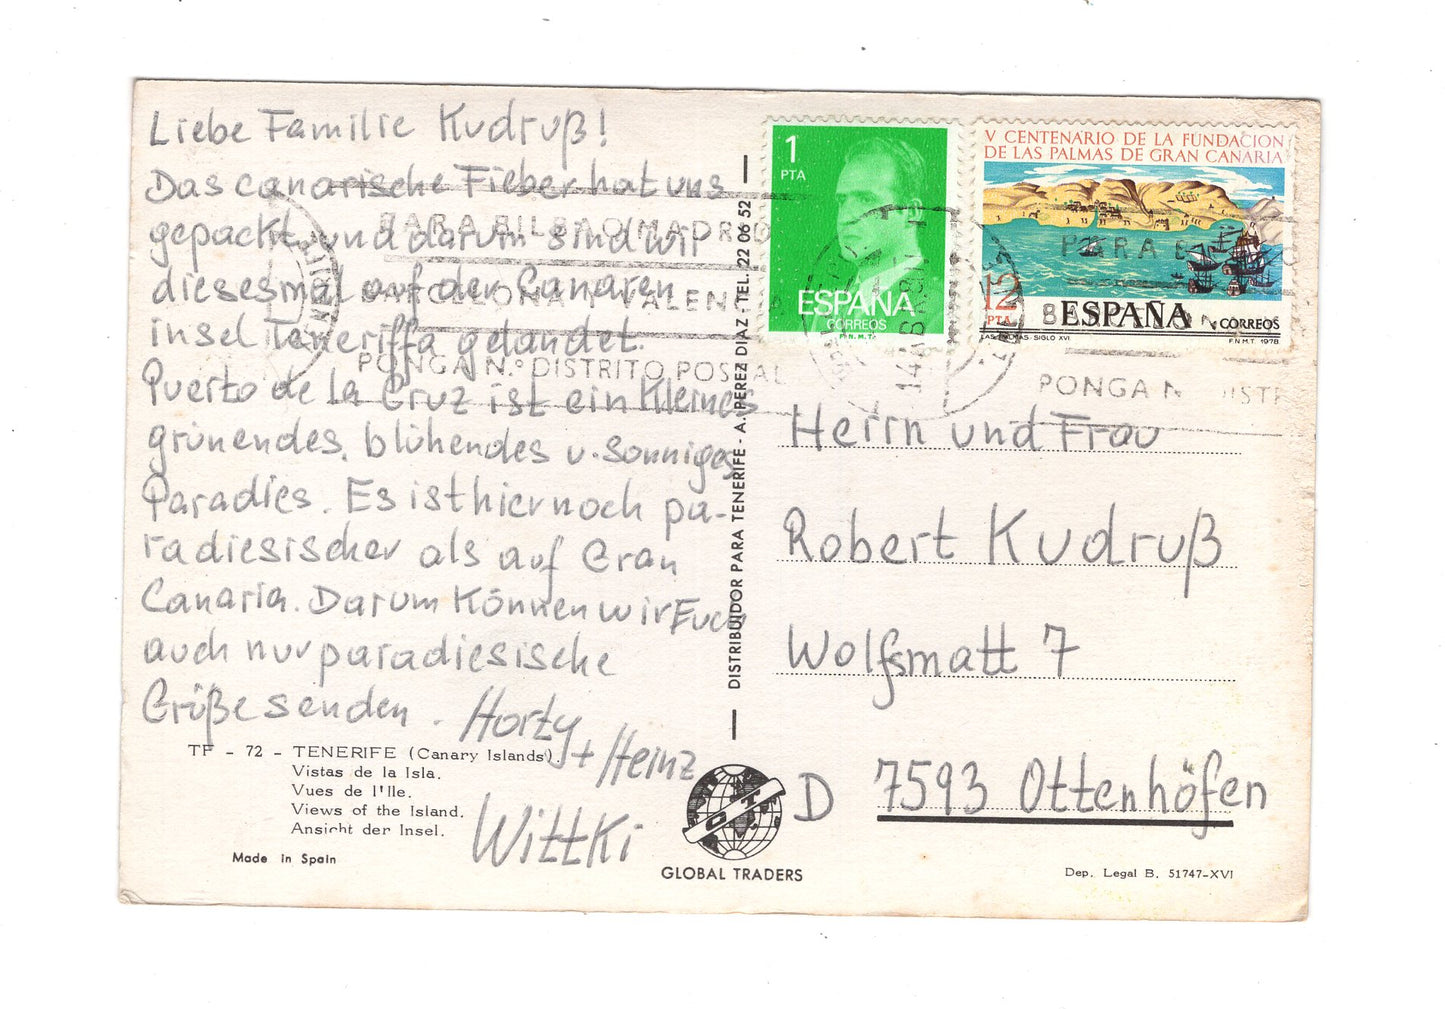 Liebe Familie Kudruß!
Das canarische Fieber hat uns
gepackt und darum sind wir
diesesmal auf der Canaren
insel Teneriffa gelandet.
Puerto de la Cruz ist ein kleines
grünendes, blühendes u. sonniges
Paradies. Es ist hier noch pa-
radiesischer als auf Gran
Canaria. Darum können wir Euch
auch nur paradiesische
Grüße senden. Horty
+ Heinz
Wittki
TF - 72 - TENERIFE (Canary Islands).
Vistas de la Isla.
Vues de l'Ile.
Views of the Island.
Ansicht der Insel.
Made in Spain
DISTRIBUIDOR PARA TENERIFE - A. PEREZ DIAZ - TEL. 22 06 52
GLOBAL TRADERS
1
PTA
ESPAÑA
CORREOS
F.N.M.T.
V CENTENARIO DE LA FUNDACION
DE LAS PALMAS DE GRAN CANARIA
12
PTA
ESPAÑA
CORREOS
LAS PALMAS-SIGLO XVI
F.N.M.T. 1978
PARA BILBAO MADRID
BARCELONA Y VALENCIA
PONGA N.º DISTRITO POSTAL
PARA B
BA
PONGA N DISTR
Herrn und Frau
Robert Kudruß
Wolfsmatt 7
D 7593 Ottenhöfen
Dep. Legal B. 51747-XVI